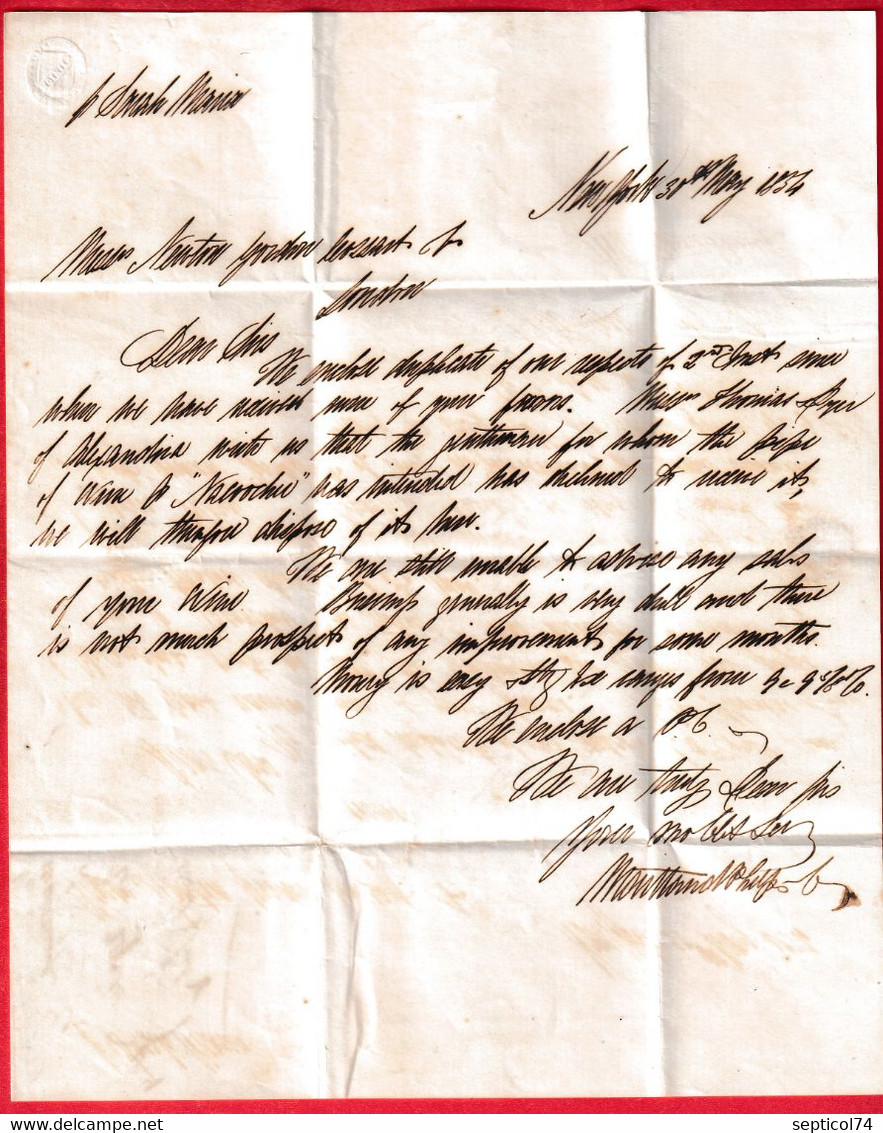 p Sarah Maria
New York 30th May 1834
Messrs Newton Gordon Cossart & Co
London
Dear Sirs
We enclose duplicate of our respects of 2nd Inst since
when we have received none of your favors. Messrs Thomas Dyer
of Alexandria write us that the gentleman for whom the pipe
of Wine p was intended has declined to receive it,
we will therefore dispose of it here.
We are still unable to advise any sales
of your Wine. Business generally is very dull and there
is not much prospect of any improvement for some months.
Money is easy & Stg Exe ranges from
We enclose a P.C.
We are truly Dear Sirs
Your Mo Obt Ser
Maitland Phelps Co
septicol74